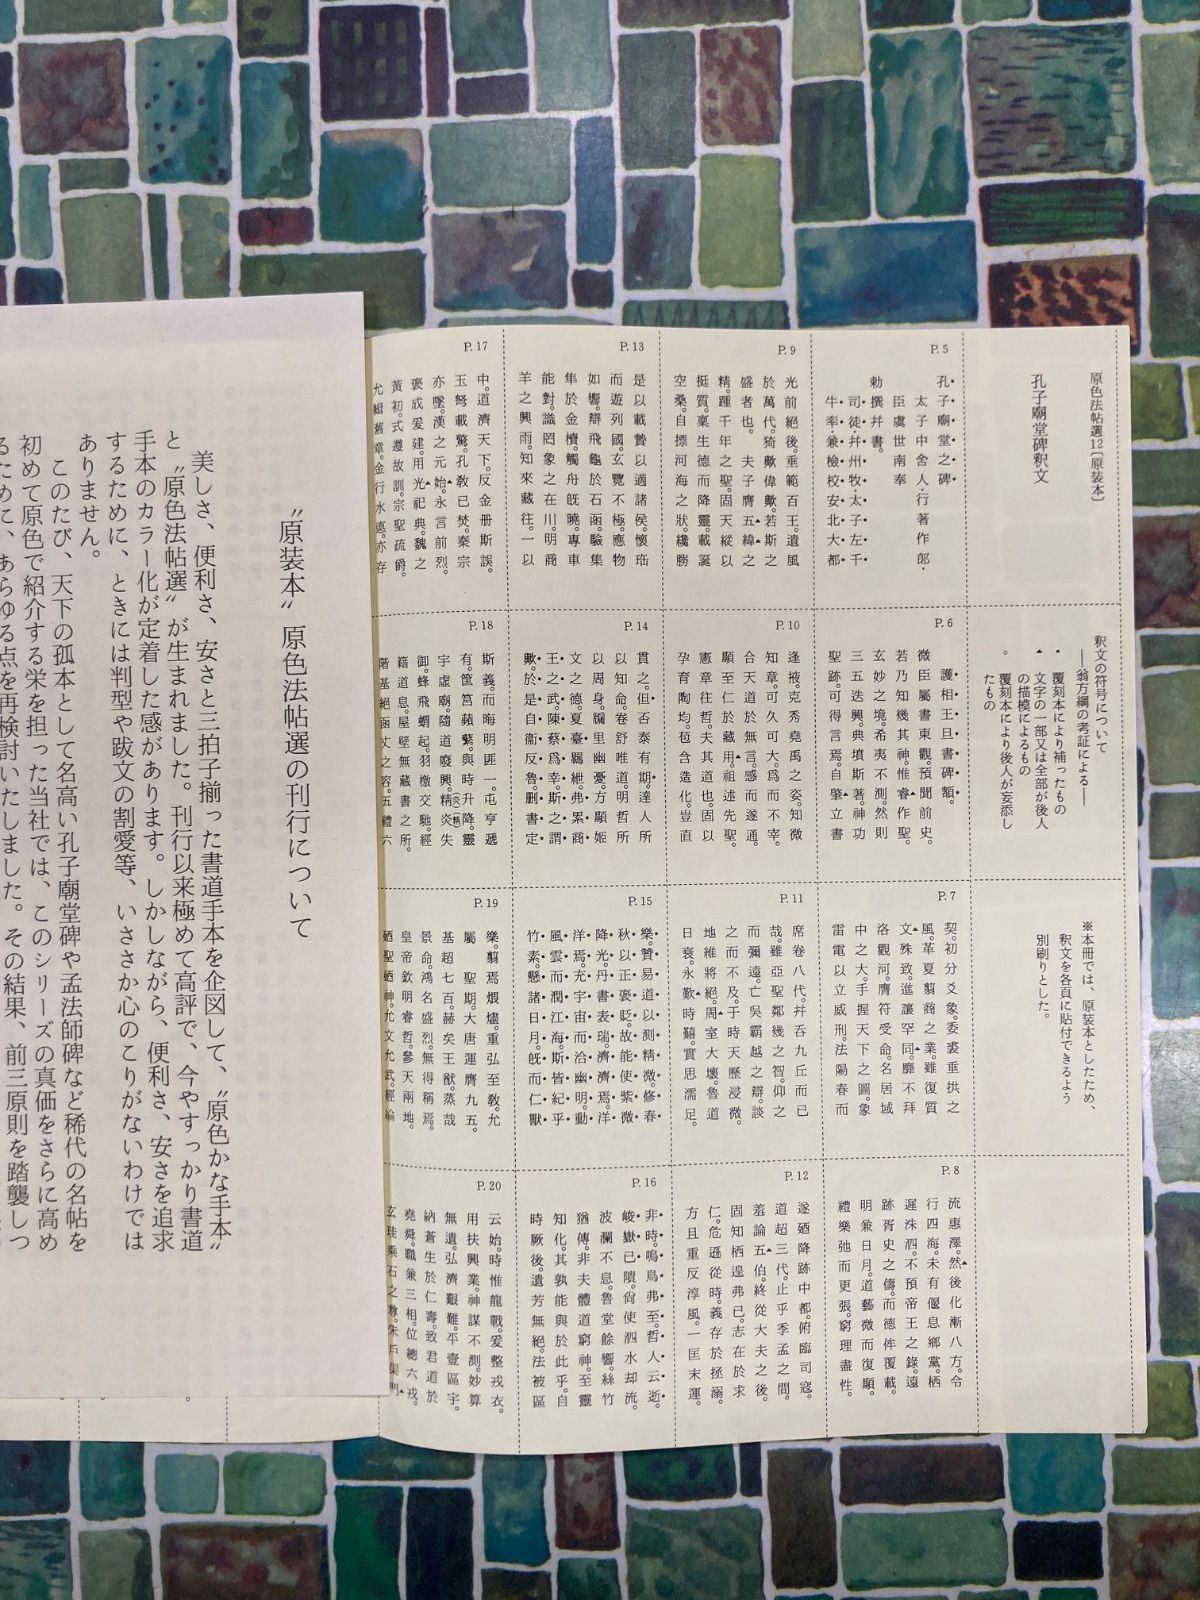 原色法帖選12[原装本]
孔子廟堂碑釈文
釈文の符号について
―翁方綱の考証による―
・ 覆刻本により補ったもの
▲ 文字の一部又は全部が後人の描模によるもの
。 覆刻本により後人が妄添したもの
※本冊では、原装本としたため、
釈文を各頁に貼付できるよう
別刷りとした。
P.5
孔子廟堂之碑
太子中舍人行著作郎
臣虞世南奉
勅撰幷書。
司徒幷州牧太子左千
牛率兼檢校安北大都
P.6
護相王旦書碑額。
微臣屬書東觀。預聞前史。
若乃知幾其神。惟睿作聖。
玄妙之境。希夷不測。然則
三五迭興。典墳斯著。神功
聖跡。可得言焉。自肇立書
P.7
契。初分爻象。委裘垂拱之
風。革夏翦商之業。雖復質
文殊致。進讓罕同。靡不拜
洛觀河。膺符受命。名居域
中之大。手握天下之圖。象
雷電以立威刑。法陽春而
P.8
流惠澤。然後化漸八方。令
行四海。未有偃息鄉黨。栖
遲洙泗。不預帝王之錄。遠
跡胥史之儔。而德侔覆載。
明兼日月。道藝微而復顯。
禮樂弛而更張。窮理盡性。
P.9
光前絕後。垂範百王。遺風
於萬代。猗歟偉歟。若斯之
盛者也。 夫子膺五緯之
精。踵千年之聖。固天縱以
挺質。稟生德而降靈。載誕
空桑。自摽河海之狀。纔勝
P.10
逢掖克秀堯禹之姿。知微
知章。可久可大。爲而不宰。
合天道於無言。感而遂通。
顯至仁於藏用。祖述先聖。
憲章往哲。夫其道也。固以
孕育陶均。苞含造化。豈直
P.11
席卷八代。幷吞九丘而已
哉。雖亞聖鄰幾之智。仰之
而彌遠。亡吳霸越之辯。談
之而不及。于時天歷浸微。
地維將絕。周室大壞。魯道
日衰。永歎時囏。實思濡足。
P.12
遂廼降跡中都。俯臨司寇。
道超三代。止乎季孟之間。
羞論五伯。終從大夫之後。
固知栖遑弗已。志在於求
仁。危遜從時。義存於拯溺。
方且重反淳風。一匡末運。
P.13
是以載贄以適諸侯。懷珤
而遊列國。玄覽不極。應物
如響。辯飛龜於石函。驗集
隼於金櫝。觸舟旣曉。專車
能對。識罔象之在川。明商
羊之興雨。知來藏往。一以
P.14
貫之。但否泰有期。達人所
以知命。卷舒唯道。明哲所
以周身。牖里幽憂。方顯姬
文之德。夏臺羈紲。弗累商
王之武。陳蔡爲幸。斯之謂
歟。於是自衞反魯。刪書定
P.15
樂。贊易道以測精微。修春
秋以正襃貶。故能使紫微
降光。丹書表瑞。濟濟焉。洋
洋焉。充宇宙而洽幽明。動
風雲而潤江海。斯皆紀乎
竹素。懸諸日月。旣而仁獸
P.16
非時。鳴鳥弗至。哲人云逝。
峻嶽已隤。尙使泗水却流。
波瀾不息。魯堂餘響。絲竹
猶傳。非夫體道窮神。至靈
知化。其孰能與於此乎。自
時厥後。遺芳無絕。法被區
P.17
中。道濟天下。反金册斯誤。
玉弩載驚。孔敎已焚。秦宗
亦墜。漢之元始。永言前烈。
襃成爰建。用光祀典。魏之
黃初。式遵故訓。宗聖疏爵。
允緝舊章。金行水德。亦存
P.18
斯義。而晦明匪一。屯亨遞
有。筐筥蘋蘩。與時升降。靈
宇虛廟。隨道廢興。精炎(炎(精))失
御。蜂飛蝟起。羽檄交馳。經
籍道息。屋壁無藏書之所。
階基絕函丈之容。五禮六
P.19
樂。翦焉煨燼。重弘至敎。允
屬 聖期。大唐運膺九五。
基超七百。赫矣王猷。蒸哉
景命。鴻名盛烈。無得稱焉。
皇帝欽明睿哲。參天兩地。
廼聖廼神。允文允武。經綸
P.20
云始。時惟龍戰。爰整戎衣。
用扶興業。神謀不測。妙算
無遺。弘濟艱難。平壹區宇。
納蒼生於仁壽。致君道於
堯舜。職兼三相。位總六戎。
玄珪乘石之尊。朱戶渠門
〝原装本〟原色法帖選の刊行について
美しさ、便利さ、安さと三拍子揃った書道手本を企図して、〝原色かな手本〟
と〝原色法帖選〟が生まれました。刊行以来極めて高評で、今やすっかり書道
手本のカラー化が定着した感があります。しかしながら、便利さ、安さを追求
するために、ときには判型や跋文の割愛等、いささか心のこりがないわけでは
ありません。
このたび、天下の孤本として名高い孔子廟堂碑や孟法師碑など稀代の名帖を
初めて原色で紹介する栄を担った当社では、このシリーズの真価をさらに高め
るために、あらゆる点を再検討いたしました。その結果、前三原則を踏襲しつ